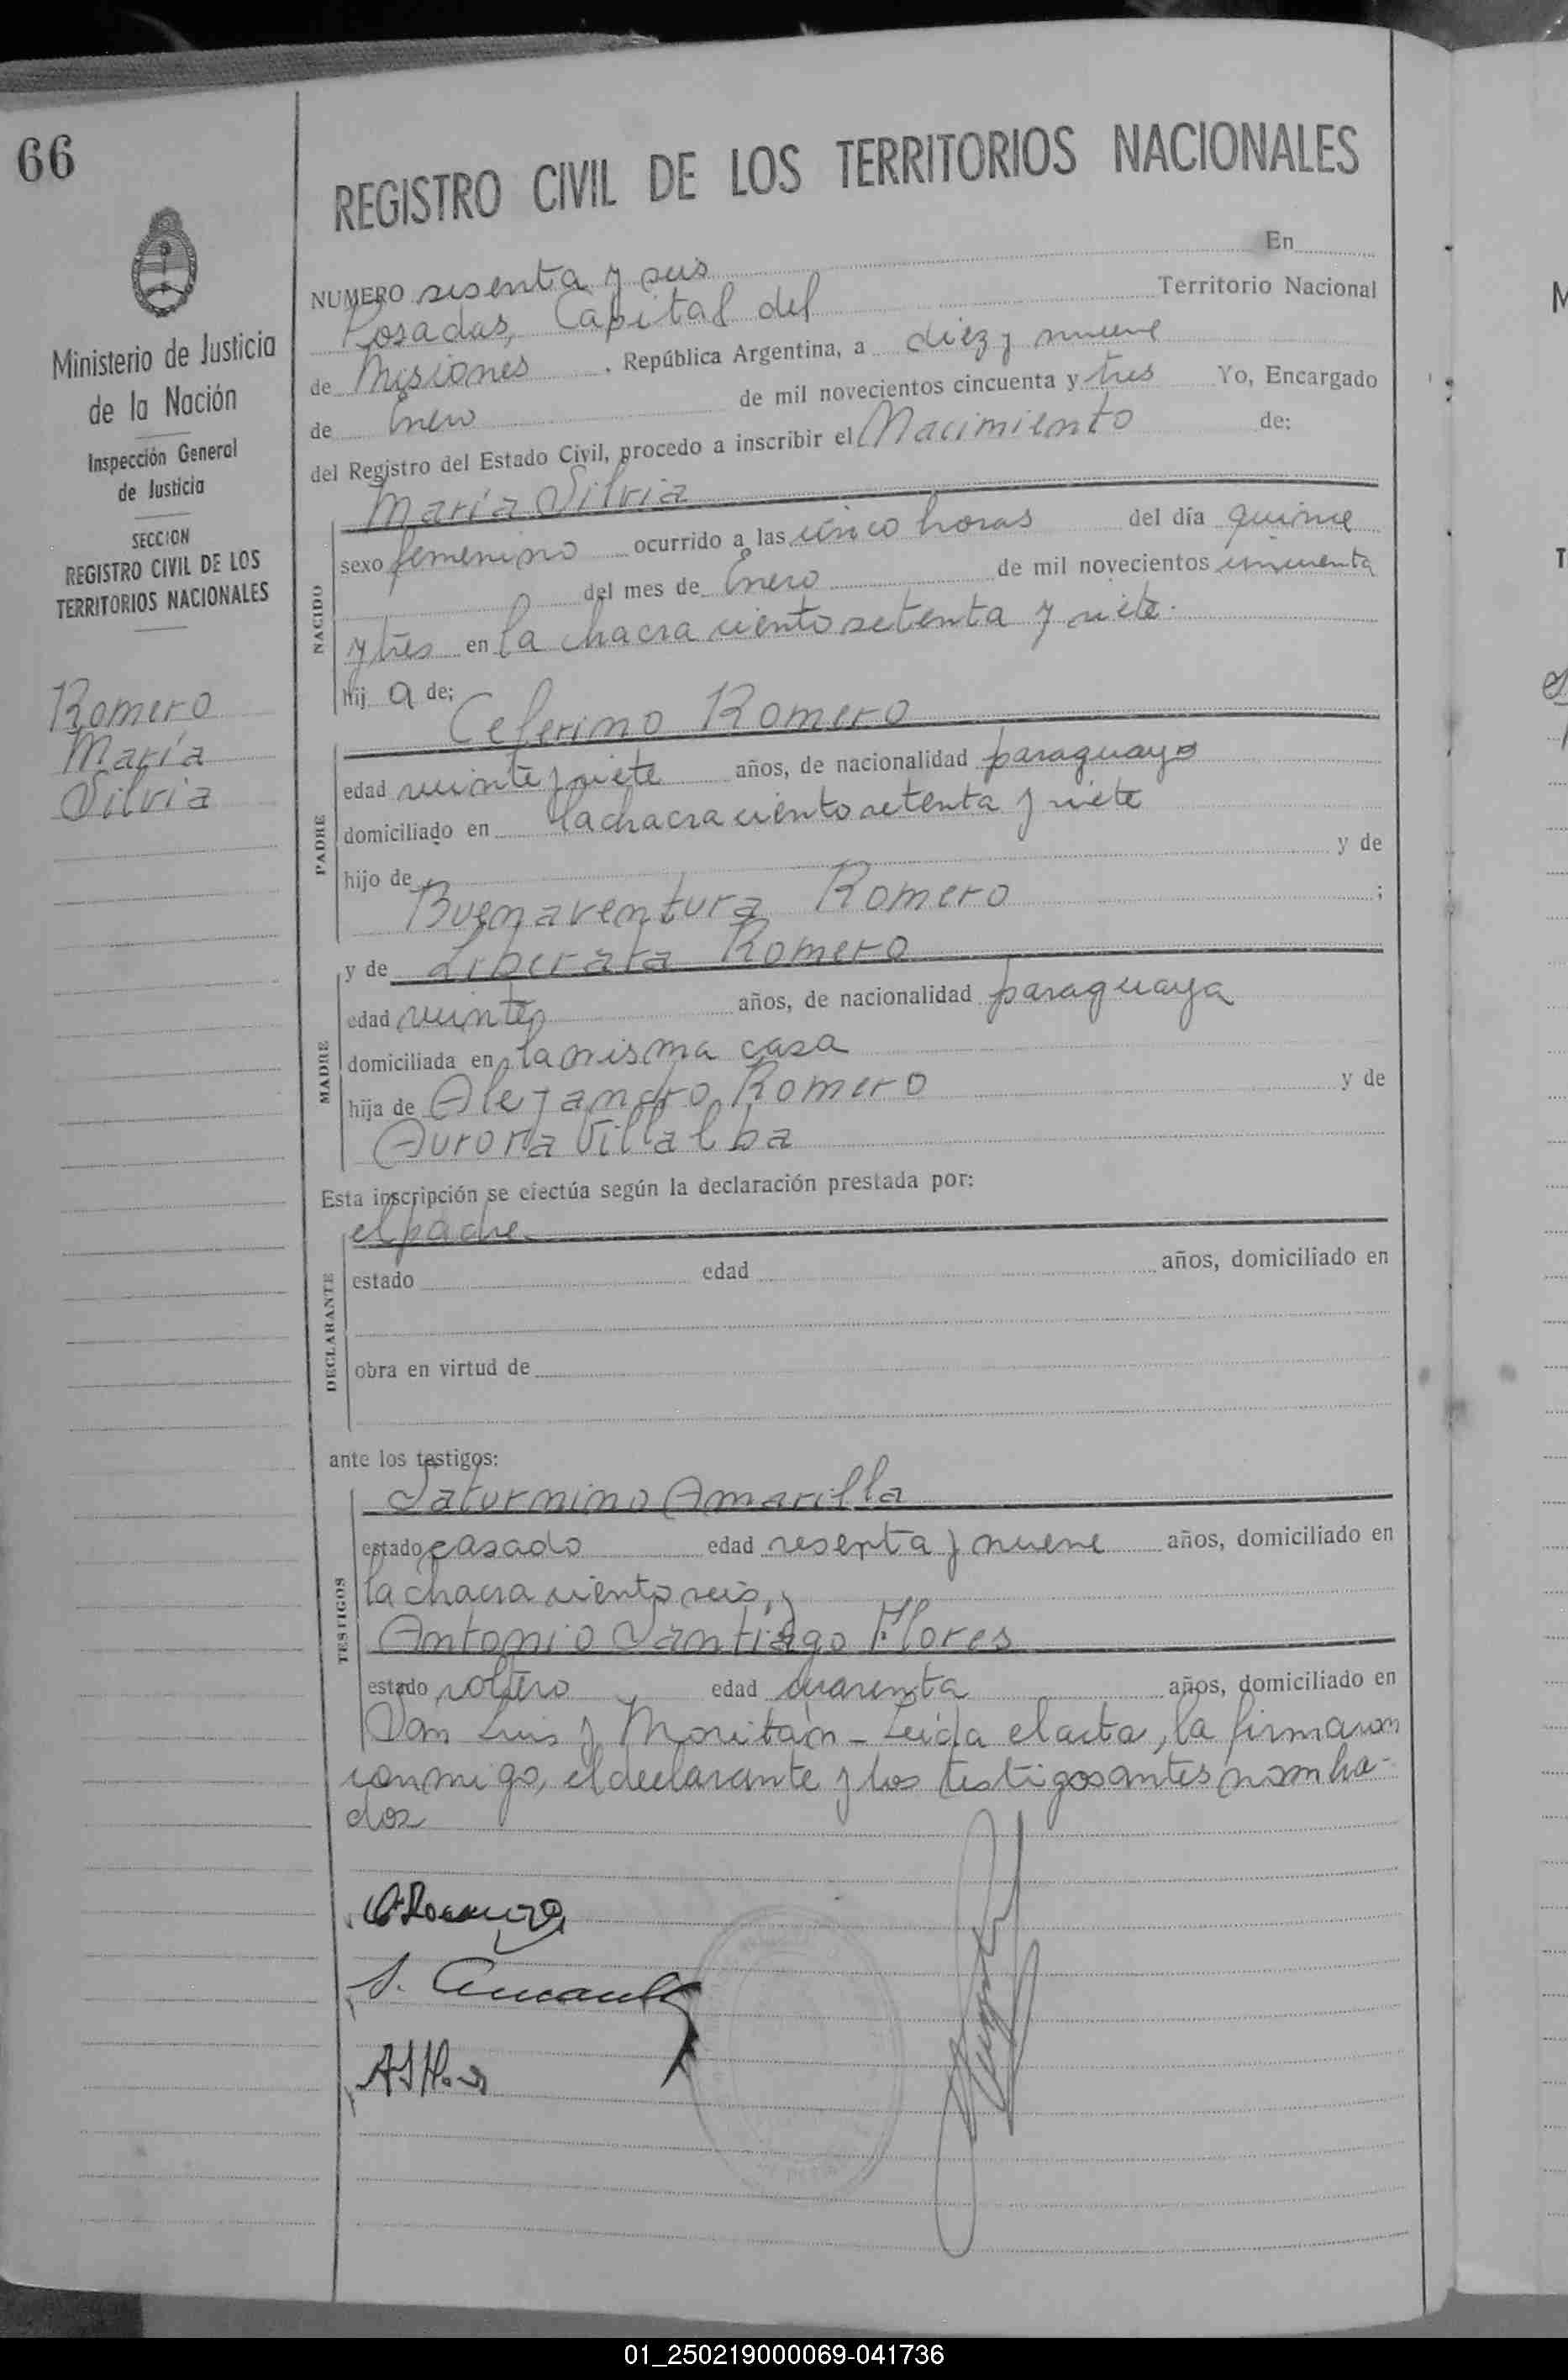 66
Ministerio de Justicia
de la Nación
Inspección General
de Justicia
SECCION
REGISTRO CIVIL DE LOS
TERRITORIOS NACIONALES
Romero
María
Silvia
REGISTRO CIVIL DE LOS TERRITORIOS NACIONALES
NUMERO sesenta y seis En
Posadas, Capital del Territorio Nacional
de Misiones, República Argentina, a diez y nueve
de Enero de mil novecientos cincuenta y tres Yo, Encargado
del Registro del Estado Civil, procedo a inscribir el Nacimiento de:
María Silvia
NACIDO
sexo femenino ocurrido a las cinco horas del día quince
del mes de Enero de mil novecientos cincuenta
y tres en la chacra ciento setenta y siete.
hij a de:
Ceferino Romero
PADRE
edad veinte y siete años, de nacionalidad paraguayo
domiciliado en la chacra ciento setenta y siete
hijo de y de
Buenaventura Romero ;
y de Liberata Romero
MADRE
edad veinte años, de nacionalidad paraguaya
domiciliada en la misma casa
hija de Alejandro Romero y de
Aurora Villalba
Esta inscripción se efectúa según la declaración prestada por:
el padre
DECLARANTE
estado edad años, domiciliado en
obra en virtud de
ante los testigos:
Saturnino Amarilla
TESTIGOS
estado casado edad sesenta y nueve años, domiciliado en
la chacra ciento seis, y
Antonio Santiago Flores
estado soltero edad cuarenta años, domiciliado en
San Luis y Moritán - Leída el acta, la firmaron
conmigo, el declarante y los testigos antes nombra-
dos
S. Amarilla
01_250219000069-041736